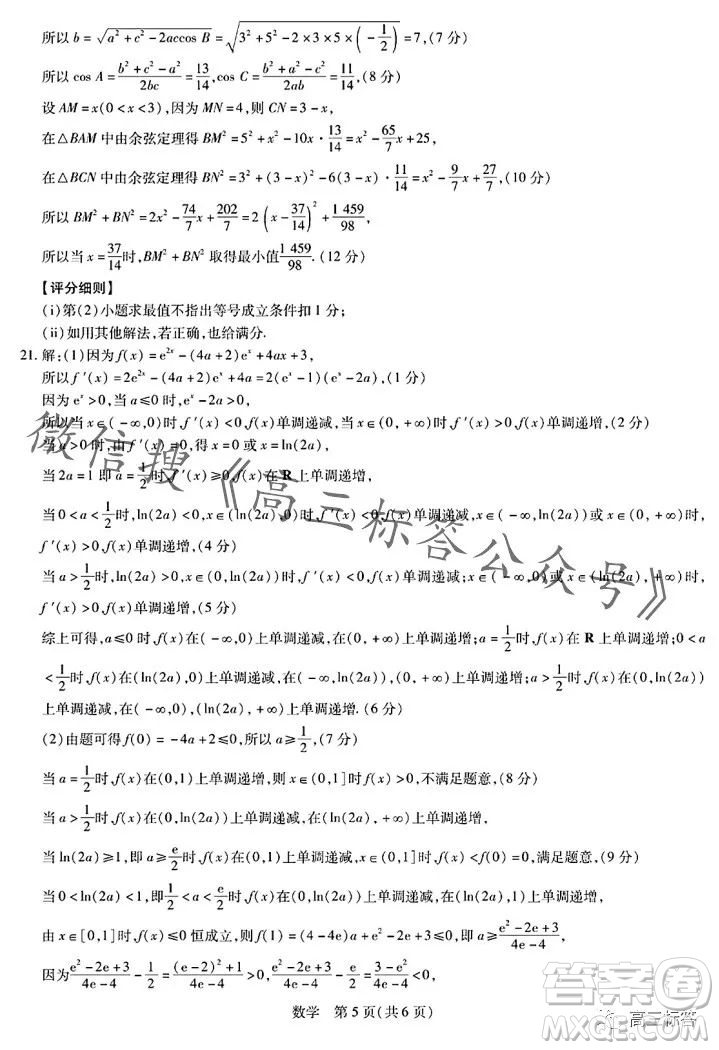 所以 b=√(a²+c²-2accos B)=√(3²+5²-2×3×5×(-1/2))=7,(7 分)
所以 cos A=(b²+c²-a²)/2bc=13/14,cos C=(b²+a²-c²)/2ab=11/14,(8 分)
设 AM=x(0<x<3),因为 MN=4,则 CN=3-x,
在△BAM 中由余弦定理得 BM²=5²+x²-10x·13/14=x²-65/7x+25,
在△BCN 中由余弦定理得 BN²=3²+(3-x)²-6(3-x)·11/14=x²-9/7x+27/7,(10 分)
所以 BM²+BN²=2x²-74/7x+202/7=2(x-37/14)²+1 459/98,
所以当 x=37/14时,BM²+BN² 取得最小值1 459/98.(12 分)
【评分细则】
(ⅰ)第(2)小题求最值不指出等号成立条件扣 1 分;
(ⅱ)如用其他解法,若正确,也给满分.
21. 解:(1)因为 f(x)=e²ˣ-(4a+2)eˣ+4ax+3,
所以 f′(x)=2e²ˣ-(4a+2)eˣ+4a=2(eˣ-1)(eˣ-2a),(1 分)
因为 eˣ>0,当 a≤0 时,eˣ-2a>0,
所以当 x∈(-∞,0)时,f′(x)<0,f(x)单调递减,当 x∈(0,+∞)时,f′(x)>0,f(x)单调递增,(2 分)
当 a>0 时,由 f′(x)=0,得 x=0 或 x=ln(2a),
当 2a=1 即 a=1/2时,f′(x)≥0,f(x)在 R 上单调递增,
当 0<a<1/2时,ln(2a)<0,x∈(ln(2a),0)时,f′(x)<0,f(x)单调递减,x∈(-∞,ln(2a))或 x∈(0,+∞)时,
f′(x)>0,f(x)单调递增,(4 分)
当 a>1/2时,ln(2a)>0,x∈(0,ln(2a))时,f′(x)<0,f(x)单调递减;x∈(-∞,0)或 x∈(ln(2a),+∞)时,
f′(x)>0,f(x)单调递增,(5 分)
综上可得,a≤0 时,f(x)在(-∞,0)上单调递减,在(0,+∞)上单调递增;a=1/2时,f(x)在 R 上单调递增;0<a
<1/2时,f(x)在(ln(2a),0)上单调递减,在(-∞,ln(2a)),(0,+∞)上单调递增;a>1/2时,f(x)在(0,ln(2a))
上单调递减,在(-∞,0),(ln(2a),+∞)上单调递增.(6 分)
(2)由题可得 f(0)=-4a+2≤0,所以 a≥1/2,(7 分)
当 a=1/2时,f(x)在(0,1)上单调递增,则 x∈(0,1]时 f(x)>0,不满足题意,(8 分)
当 a>1/2时,f(x)在(0,ln(2a))上单调递减,在(ln(2a),+∞)上单调递增,
当 ln(2a)≥1,即 a≥e/2时,f(x)在(0,1)上单调递减,x∈(0,1]时 f(x)<0,满足题意,(9 分)
当 0<ln(2a)<1,即1/2<a<e/2时,f(x)在(0,ln(2a))上单调递减,在(ln(2a),1)上单调递增,
由 x∈[0,1]时,f(x)≤0 恒成立,则 f(1)=(4-4e)a+e²-2e+3≤0,即 a≥(e²-2e+3)/(4e-4),
因为(e²-2e+3)/(4e-4)-1/2=((e-2)²+1)/(4e-4)>0,(e²-2e+3)/(4e-4)-e/2=(3-e²)/(4e-4)<0,
数学 第 5 页(共 6 页)
微信搜《高三标答公众号》
答案卷
MXQE.COM
高三标答